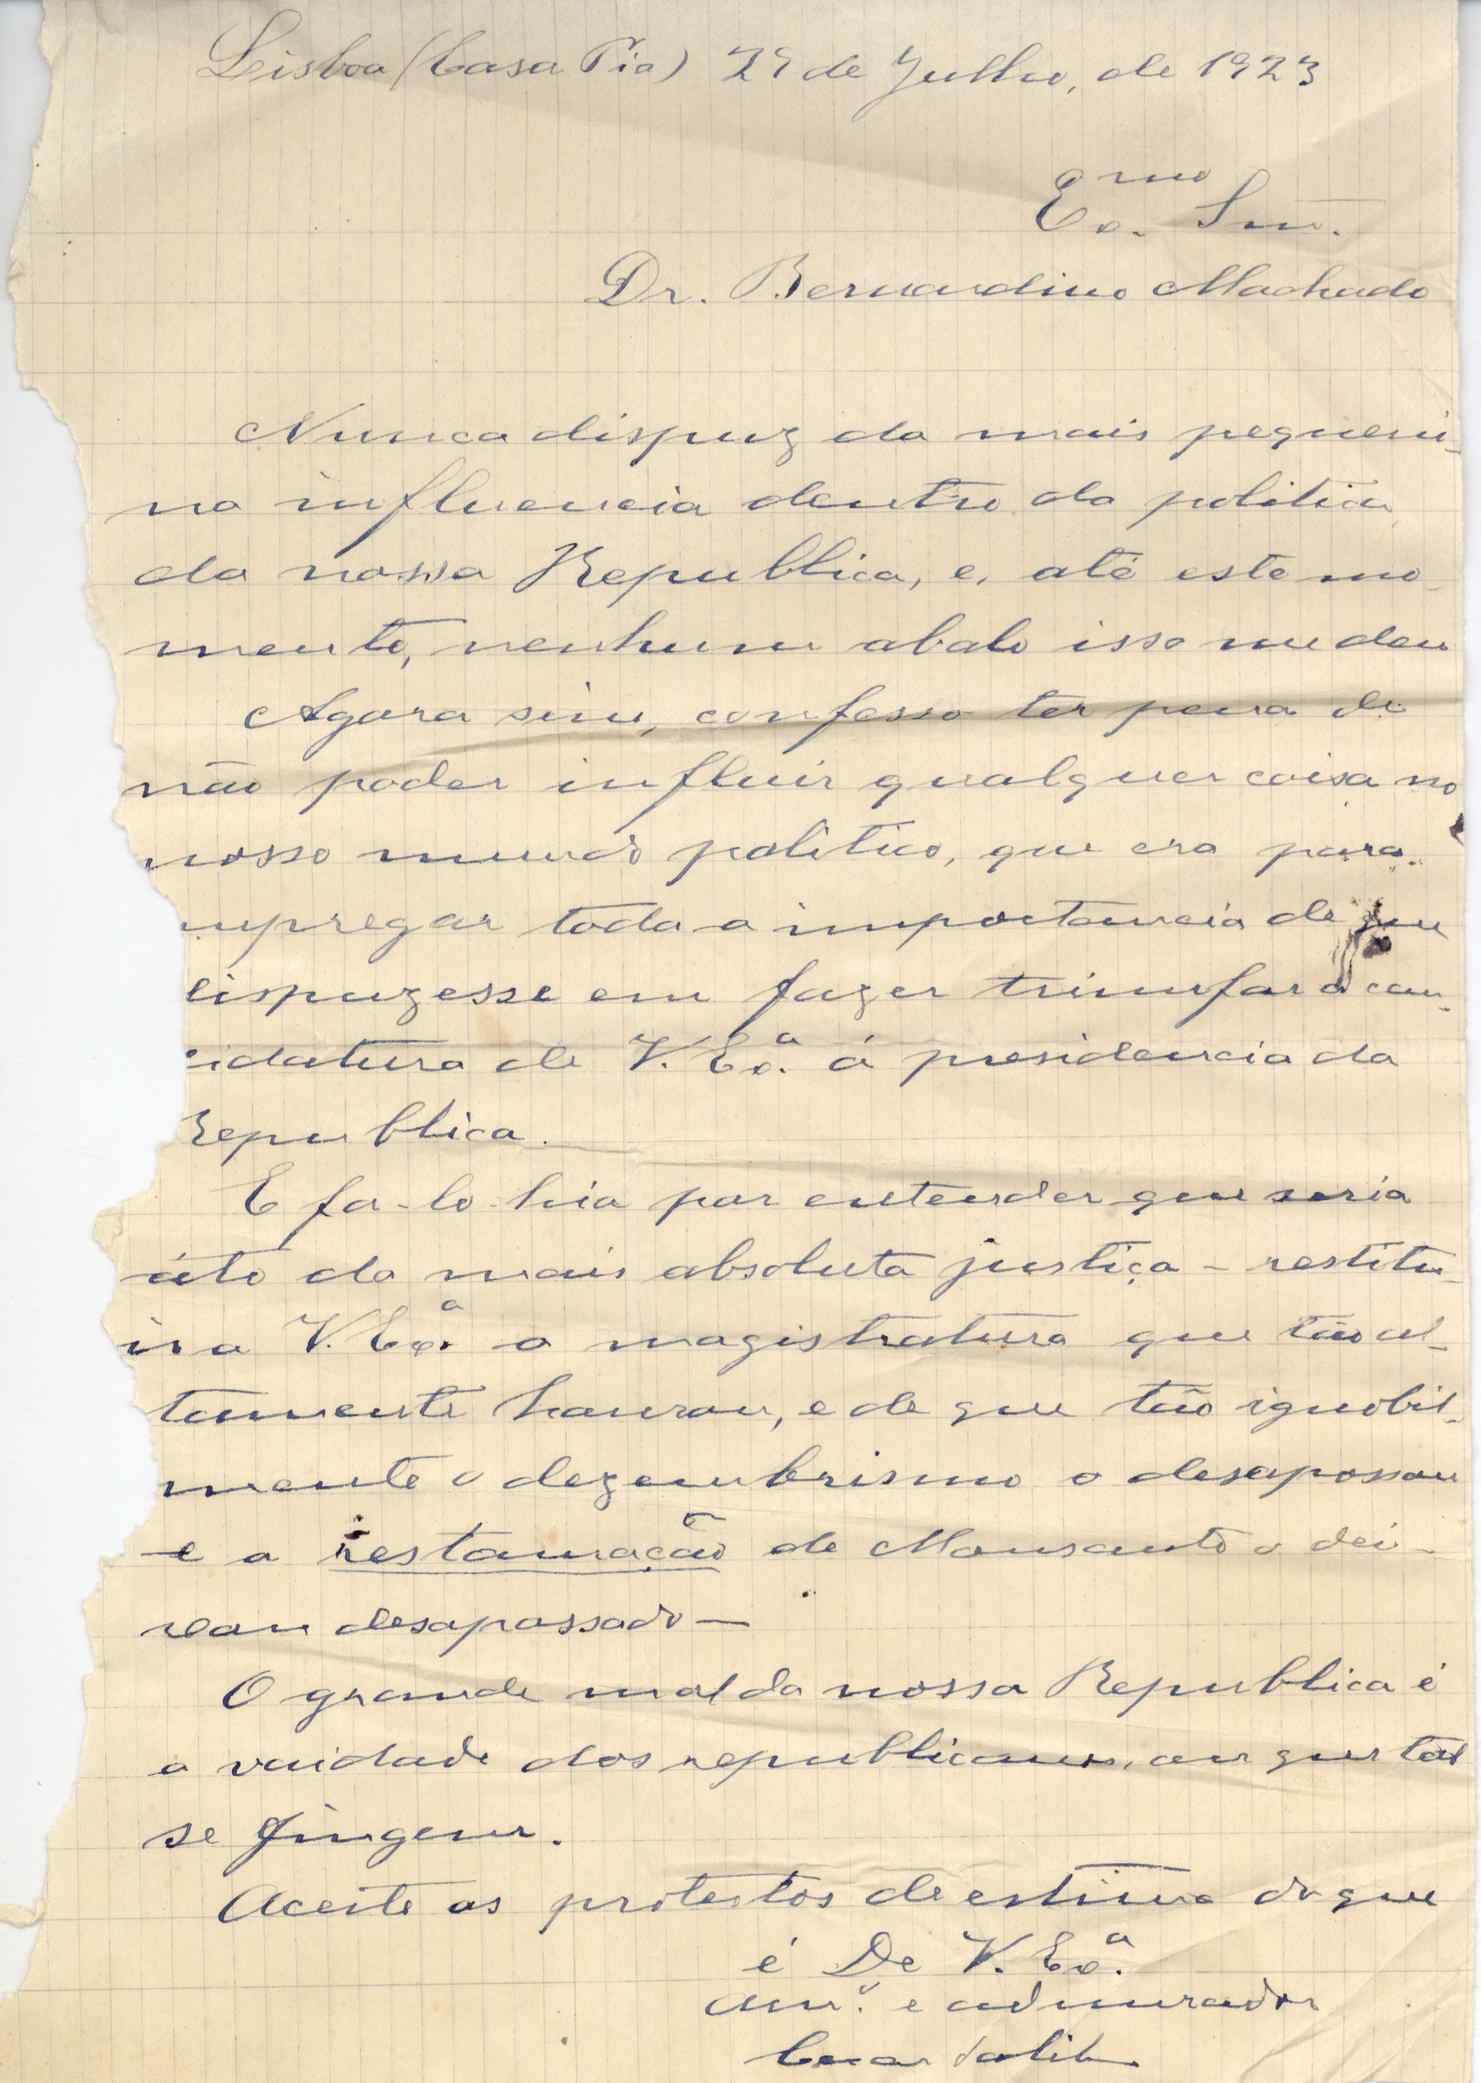 Lisboa (Casa Pia) 29 de Julho, de 1923
Exmo. Snr.
Dr. Bernardino Machado
Nunca dispuz da mais pequeni-
na influencia dentro da politica
da nossa Republica, e, até este mo-
mento, nenhum abalo isso me deu
Agora sim, confesso ter pena de
não poder influir qualquer coisa no
nosso mundo politico, que era para
mpregar toda a importancia de que
dispuzesse em fazer triunfar a can-
idatura de V. Exª. á presidencia da
Republica.
E fa-lo-hia por entender que seria
áto da mais absoluta justiça - restitu-
ir a V. Exª. a magistratura que tão al-
tamente honrou, e de que tão ignobil-
mente o dezembrismo o desapossou
e a restauração de Monsanto o dei-
xou desapossado—
O grande mal da nossa Republica é
a vaidade dos republicanos, ou que tal
se fingem.
Aceite os protestos de estima do que
é De V. Exª.
Amº. e admirador